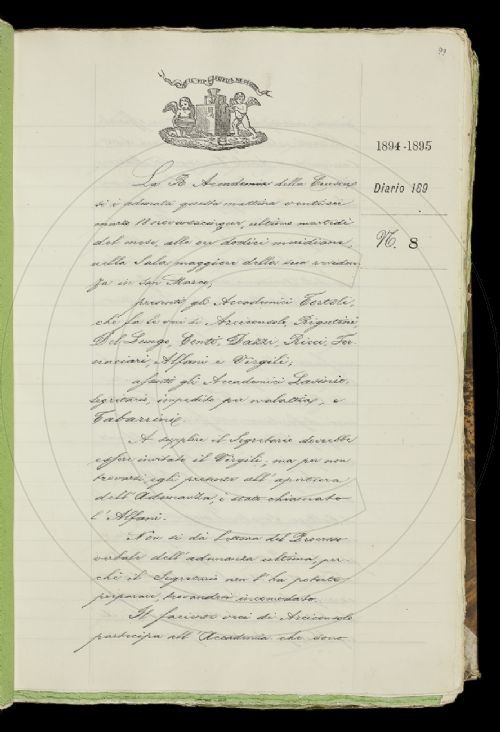 99
1894-1895
Diario 169
N. 8
La R. Accademia della Crusca
si è adunata questa mattina ventisei
marzo 1895, ultimo martedì
del mese, alle ore dodici meridiane,
nella Sala maggiore della sua residen-
za in San Marco;
presenti gli Accademici Tortoli,
che fa le veci di Arciconsolo, Rigutini,
Del Lungo, Conti, Dazzi, Ricci, Tor-
Alfani e Virgili;
assenti gli Accademici
segretario, impedito per malattia, e
Tabarrini.
A supplire il Segretario dovrebbe
essere invitato il Virgili, ma per non
trovarsi egli presente all'apertura
dell'Adunanza, è stato chiamato
l'Alfani.
Non si dà lettura del Processo
verbale dell'adunanza ultima, per-
chè il Segretario non l'ha potuto
preparare, trovandosi incomodato.
Il facente veci di Arciconsolo
partecipa all'Accademia che sono